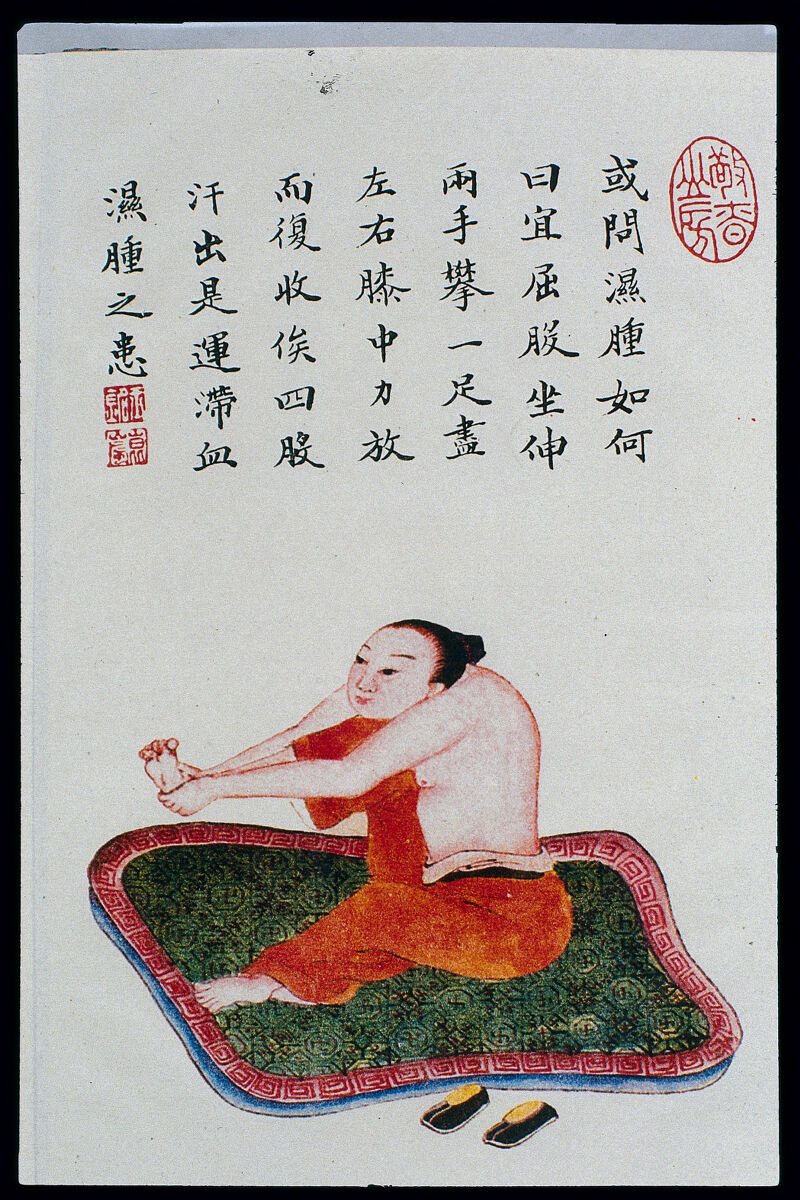 或問濕腫如何
曰宜屈股坐伸
兩手攀一足盡
左右膝中力放
而復收俟四股
汗出是運滯血
濕腫之患